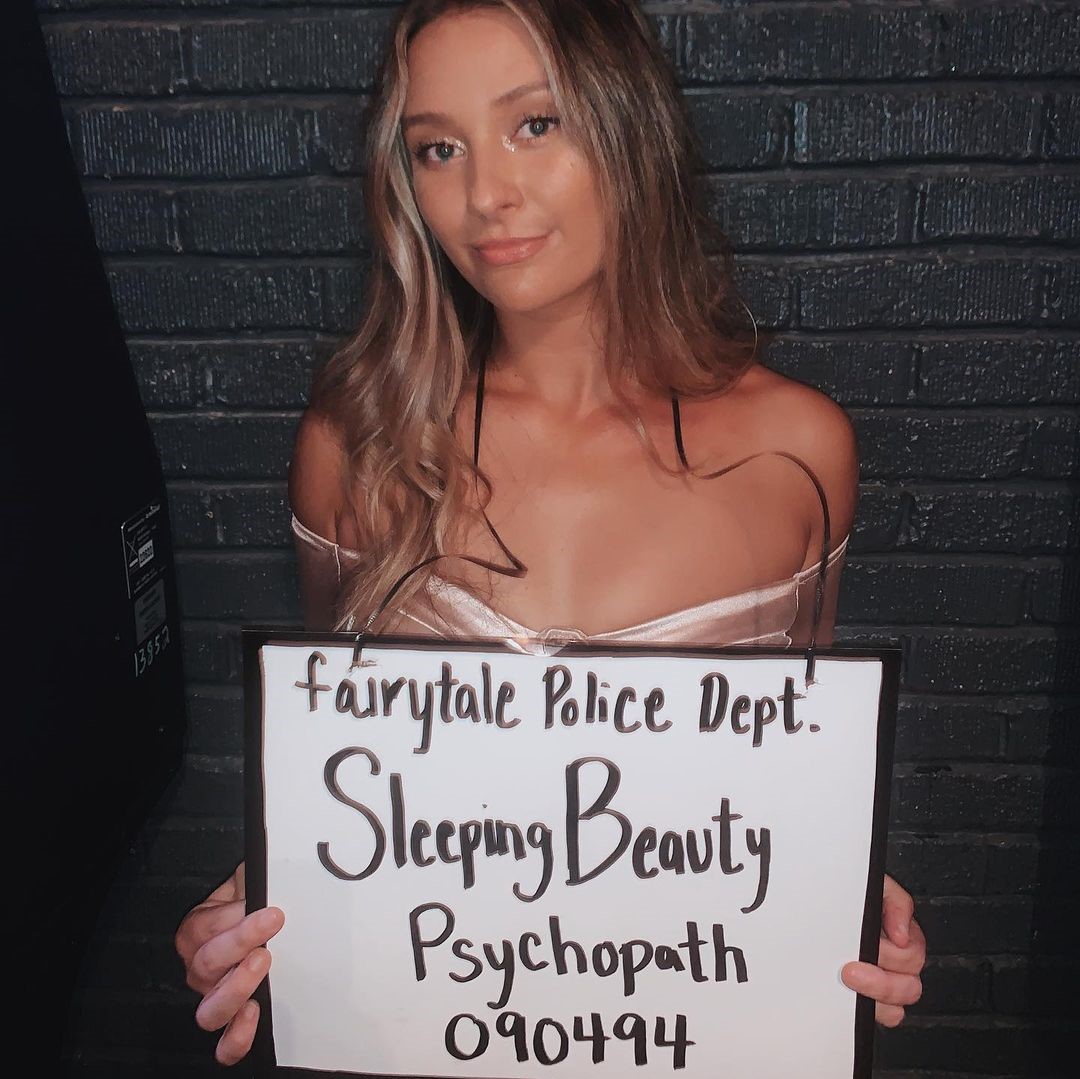 fairytale Police Dept.
Sleeping Beauty
Psychopath
090494
13852